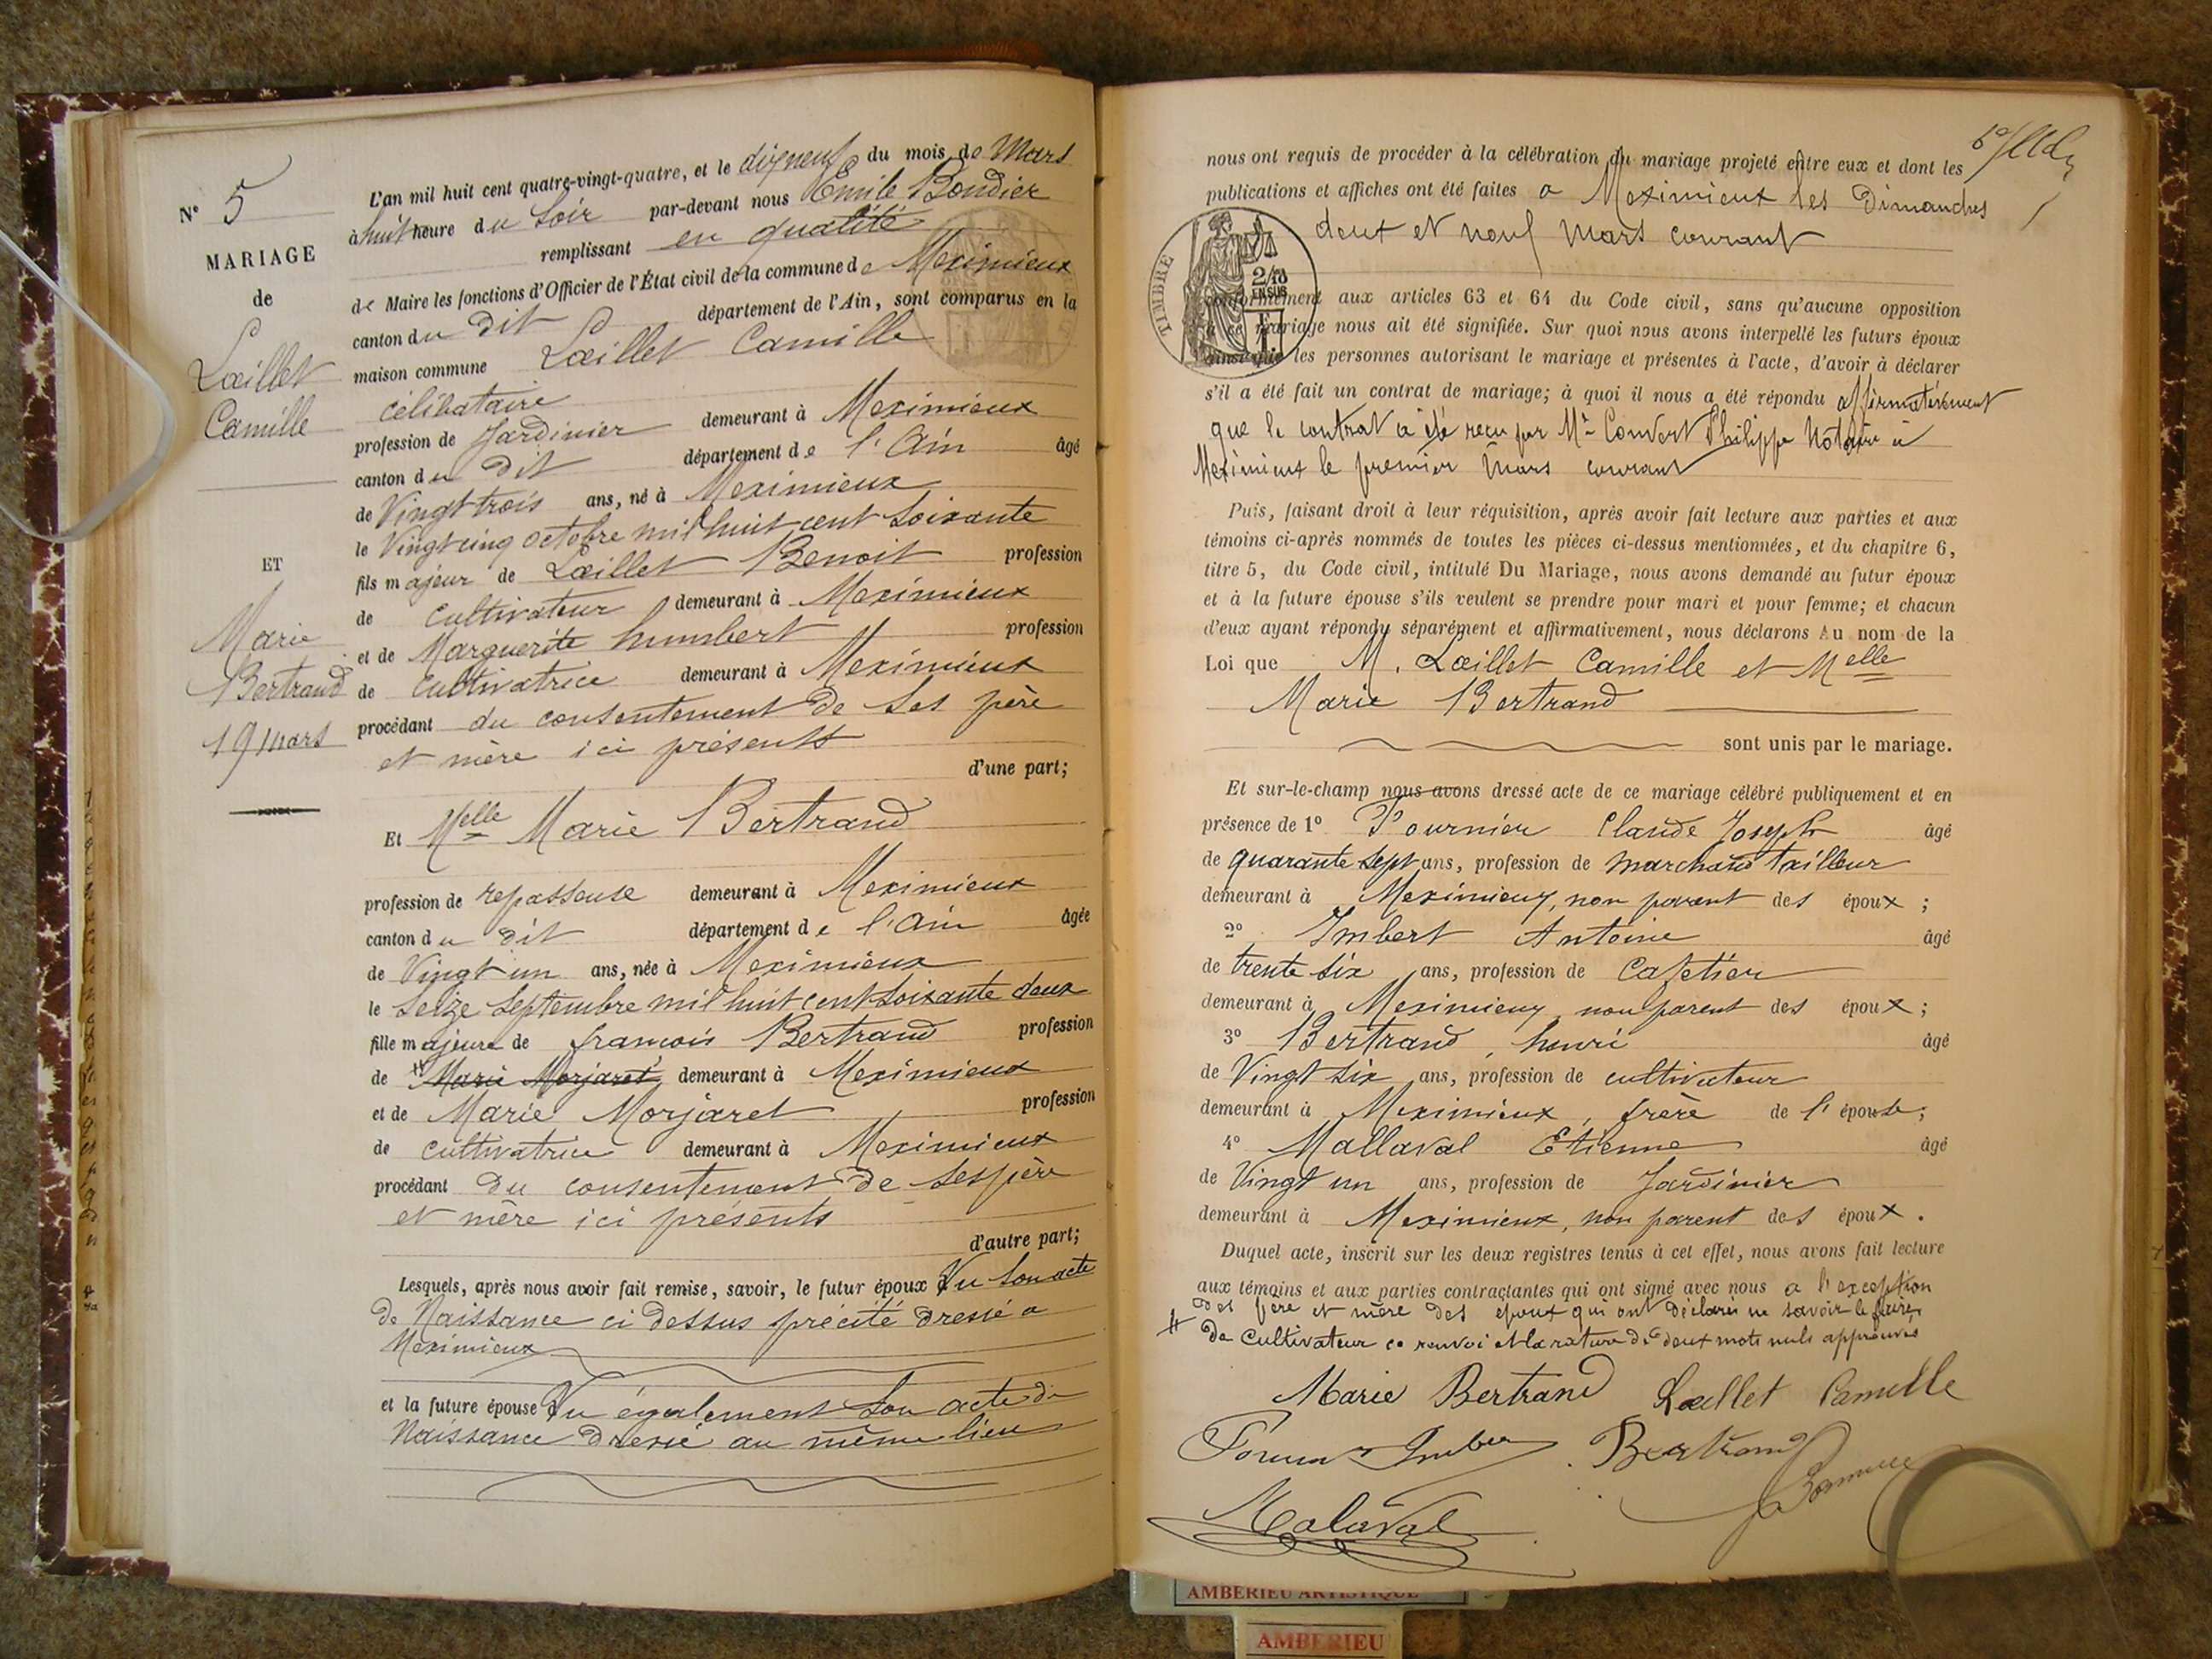 N° 5
MARIAGE
de
Lœillet
Camille
ET
Marie
Bertrand
19 mars
L'an mil huit cent quatre-vingt-quatre, et le dixneuf du mois de Mars
à huit heure du Soir par-devant nous Emile Bondier
remplissant en qualité
de Maire les fonctions d'Officier de l'État civil de la commune de Meximieux
canton du dit département de l'Ain, sont comparus en la
maison commune Lœillet Camille
célibataire
profession de Jardinier demeurant à Meximieux
canton du dit département de l'Ain âgé
de Vingt trois ans, né à Meximieux
le Vingt cinq octobre mil huit cent soixante
fils majeur de Lœillet Benoit profession
de cultivateur demeurant à Meximieux
et de Marguerite humbert profession
de cultivatrice demeurant à Meximieux
procédant du consentement de ses père
et mère ici présents
d'une part;
Et Melle Marie Bertrand
profession de repasseuse demeurant à Meximieux
canton du dit département de l'Ain âgée
de Vingt un ans, née à Meximieux
le seize Septembre mil huit cent soixante deux
fille majeure de francois Bertrand profession
de Marie Morjaret demeurant à Meximieux
et de Marie Morjaret profession
de cultivatrice demeurant à Meximieux
procédant du consentement de ses père
et mère ici présents
d'autre part;
Lesquels, après nous avoir fait remise, savoir, le futur époux Vu son acte
de Naissance ci dessus précité dressé a
Meximieux
et la future épouse Vu également son acte de
Naissance dressé au même lieu
nous ont requis de procéder à la célébration du mariage projeté entre eux et dont les
publications et affiches ont été faites a Meximieux les Dimanches
deux et neuf mars courant
TIMBRE
2/10
EN SUS
conformément aux articles 63 et 64 du Code civil, sans qu'aucune opposition
à ce mariage nous ait été signifiée. Sur quoi nous avons interpellé les futurs époux
ainsi que les personnes autorisant le mariage et présentes à l'acte, d'avoir à déclarer
s'il a été fait un contrat de mariage; à quoi il nous a été répondu affirmativement
que le contrat a été reçu par Me Convert Philippe Notaire à
Meximieux le premier mars courant
Puis, faisant droit à leur réquisition, après avoir fait lecture aux parties et aux
témoins ci-après nommés de toutes les pièces ci-dessus mentionnées, et du chapitre 6,
titre 5, du Code civil, intitulé Du Mariage, nous avons demandé au futur époux
et à la future épouse s'ils veulent se prendre pour mari et pour femme; et chacun
d'eux ayant répondu séparément et affirmativement, nous déclarons Au nom de la
Loi que M. Lœillet Camille et Melle
Marie Bertrand
sont unis par le mariage.
Et sur-le-champ nous avons dressé acte de ce mariage célébré publiquement et en
présence de 1° Fournier Claude Joseph âgé
de quarante sept ans, profession de marchand tailleur
demeurant à Meximieux, non parent des époux ;
2° Imbert Antoine âgé
de trente six ans, profession de Cafetier
demeurant à Meximieux non parent des époux ;
3° Bertrand, henri âgé
de Vingt six ans, profession de cultivateur
demeurant à Meximieux, frère de l'épouse ;
4° Mallaval Etienne âgé
de Vingt un ans, profession de Jardinier
demeurant à Meximieux, non parent des époux .
Duquel acte, inscrit sur les deux registres tenus à cet effet, nous avons fait lecture
aux témoins et aux parties contractantes qui ont signé avec nous a l'exception
des père et mère des époux qui ont déclarés ne savoir le faire,
# de Cultivateur ce renvoi et la rature de deux mots nuls approuvés
Marie Bertrand Lœillet Camille
Imbert Bertrand
Malaval
AMBERIEU ARTISTIQUE
AMBERIEU